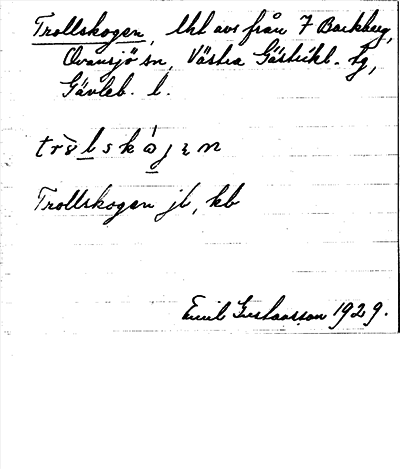 Trollskogen, lht avs från 7 Backberg,
Ovansjö sn, Västra Gästrikl. tg,
Gävleb. l.
tròlskójən
Trollskogen jb, kb
Emil Gustavsson 1929.